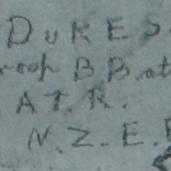 DUKES.
roop BB. at
A T. R.
N. Z. E. F